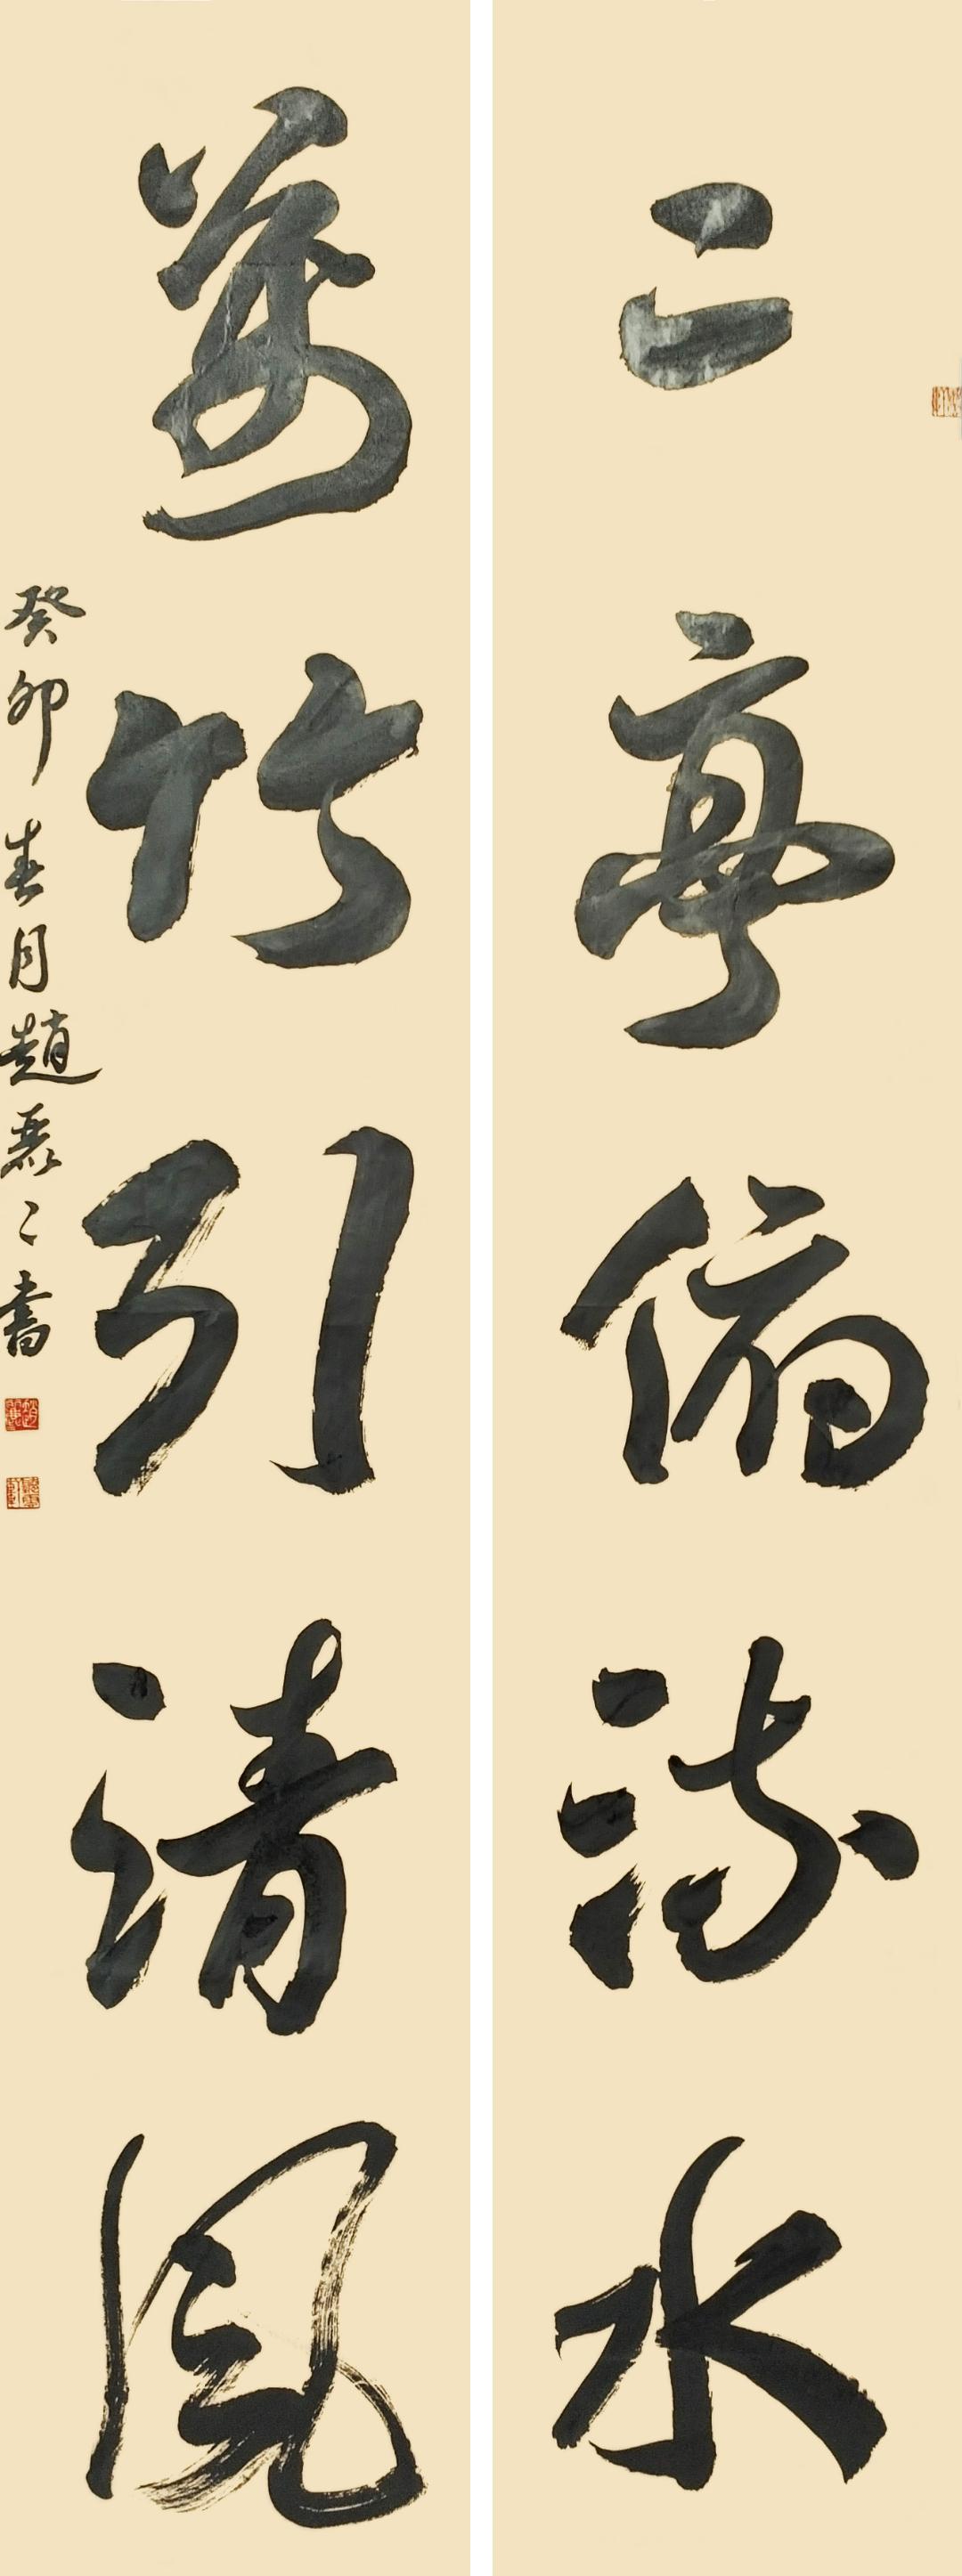 二亭俯流水
萬竹引清風
癸卯春月趙書